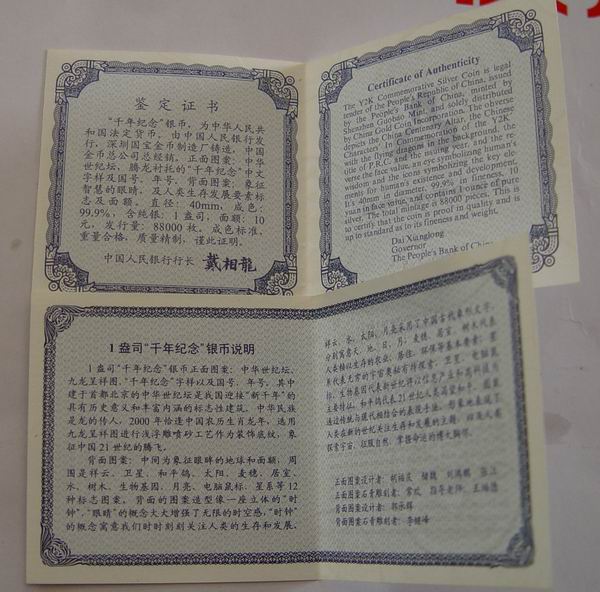 鉴定证书
"千年纪念"银币，为中华人民共
和国法定货币，由中国人民银行发
行，深圳国宝金币制造厂铸造，中国
金币总公司总经销。正面图案：中华
世纪坛，腾龙衬托的"千年纪念"中文
字样及国号、年号。背面图案：象征
智慧的眼睛，及人类生存发展要素标
志及面额。直径：40mm，成色：
99.9%，含纯银：1盎司，面额：10
元，发行量：88000枚。成色标准，
重量合格，质量精制，谨此证明。
中国人民银行行长 戴相龙
Certificate of Authenticity
The Y2K Commemorative Silver Coin is legal
tender of the People's Republic of China, issued
by the People's Bank of China, minted by
Shenzhen Guobao Mint, and solely distributed
by China Gold Coin Incorporation. The obverse
depicts the China Centenary Altar, the Chinese
Character" In Commemoration of the Y2K"
with the flying dragons in the background, the
title of P.R.C. and the issuing year, and the re-
verse the face value, an eye symbolizing human's
wisdom and the icons symbolizing the key ele-
ments for human's existence and development.
It's 40mm in diameter, 99.9% in fineness, 10
yuan in face value, and contains 1 ounce of pure
silver. The total mintage is 88000 pieces. This is
to certify that the coin is proof in quality and is
up to standard as to its fineness and weight.
Dai Xianglong
Governor
The People's Bank of China
1盎司"千年纪念"银币说明
1盎司"千年纪念"银币正面图案：中华世纪坛、
九龙呈祥图、"千年纪念"字样以及国号、年号。其中
建于首都北京的中华世纪坛是我国迎接"新千年"的
具有历史意义和丰富内涵的标志性建筑。中华民族
是龙的传人，2000年恰逢中国农历生肖龙年，选用
九龙呈祥图进行浅浮雕喷砂工艺作为装饰底纹，象
征中国21世纪的腾飞。
背面图案：中间为象征眼眸的地球和面额；周
围是祥云、卫星、和平鸽、太阳、麦穗、居室、
水、树木、生物基因、月亮、电脑鼠标、星系等12
种标志图案。背面的图案造型像一座立体的"时
钟"，"眼睛"的概念大大增强了无限的时空感，"时钟"
的概念寓意我们时时刻刻关注人类的生存和发展。
祥云、水、太阳、月亮采用了中国古代象形文字，
分别寓意天、地、日、月；麦穗、居室、树木代表
人类赖以生存的农业、居住、环保等基本要素；星
系代表无穷的宇宙奥秘有待探索，卫星、电脑鼠
标、生物基因代表新世纪将以信息产业和高科技为
主要特征，和平鸽代表21世纪人类渴望和平。图案
通过传统与现代相结合的表现手法，形象地表现了
人类在新的世纪关注生存和发展的主题，以及人类
探索宇宙、征服自然、掌握命运的博大胸怀。
正面图案设计者：
正面图案石膏雕刻者：
背面图案设计者：郭承辉
背面图案石膏雕刻者：李健峰